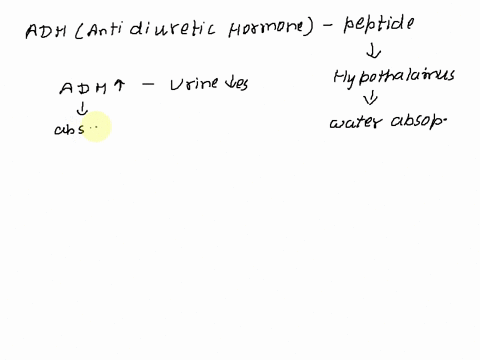 ADH (Anti diuretic Hormone) - peptide
↓
Hypothalamus
↓
water absop.
ADH ↑ - Urine ↓es
↓
abs..